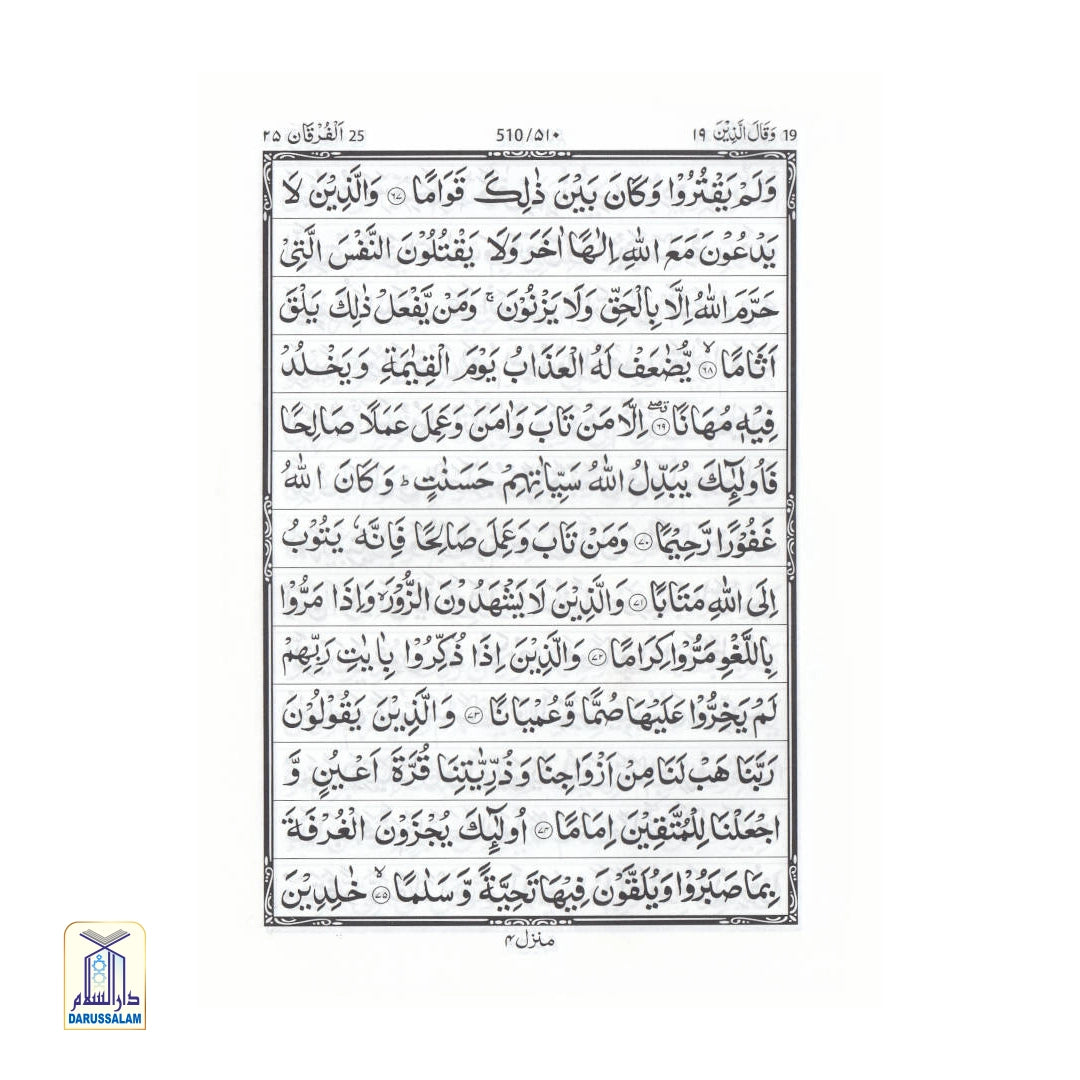 19 وَقَالَ الَّذِيْنَ ١٩ 510/۵۱۰ 25 اَلْفُرْقَان ٢۵
وَلَمْ يَقْتُرُوْا وَكَانَ بَيْنَ ذٰلِكَ قَوَامًا ﴿۶۷﴾ وَالَّذِيْنَ لَا
يَدْعُوْنَ مَعَ اللّٰهِ اِلٰهًا اٰخَرَ وَلَا يَقْتُلُوْنَ النَّفْسَ الَّتِيْ
حَرَّمَ اللّٰهُ اِلَّا بِالْحَقِّ وَلَا يَزْنُوْنَ ۚ وَمَنْ يَّفْعَلْ ذٰلِكَ يَلْقَ
اَثَامًا ۙ﴿۶۸﴾ يُّضٰعَفْ لَهُ الْعَذَابُ يَوْمَ الْقِيٰمَةِ وَيَخْلُدْ
فِيْهٖ مُهَانًا ﴿۶۹﴾ۖۗ اِلَّا مَنْ تَابَ وَاٰمَنَ وَعَمِلَ عَمَلًا صَالِحًا
فَاُولٰٓئِكَ يُبَدِّلُ اللّٰهُ سَيِّاٰتِهِمْ حَسَنٰتٍ ؕ وَكَانَ اللّٰهُ
غَفُوْرًا رَّحِيْمًا ﴿۷۰﴾ وَمَنْ تَابَ وَعَمِلَ صَالِحًا فَاِنَّهٗ يَتُوْبُ
اِلَى اللّٰهِ مَتَابًا ﴿۷۱﴾ وَالَّذِيْنَ لَا يَشْهَدُوْنَ الزُّوْرَ ۙ وَاِذَا مَرُّوْا
بِاللَّغْوِ مَرُّوْا كِرَامًا ﴿۷۲﴾ وَالَّذِيْنَ اِذَا ذُكِّرُوْا بِاٰيٰتِ رَبِّهِمْ
لَمْ يَخِرُّوْا عَلَيْهَا صُمًّا وَّعُمْيَانًا ﴿۷۳﴾ وَالَّذِيْنَ يَقُوْلُوْنَ
رَبَّنَا هَبْ لَنَا مِنْ اَزْوَاجِنَا وَذُرِّيّٰتِنَا قُرَّةَ اَعْيُنٍ وَّ
اجْعَلْنَا لِلْمُتَّقِيْنَ اِمَامًا ﴿۷۴﴾ اُولٰٓئِكَ يُجْزَوْنَ الْغُرْفَةَ
بِمَا صَبَرُوْا وَيُلَقَّوْنَ فِيْهَا تَحِيَّةً وَّسَلٰمًا ۙ﴿۷۵﴾ خٰلِدِيْنَ
منزل ۴
دارالسلام
DARUSSALAM